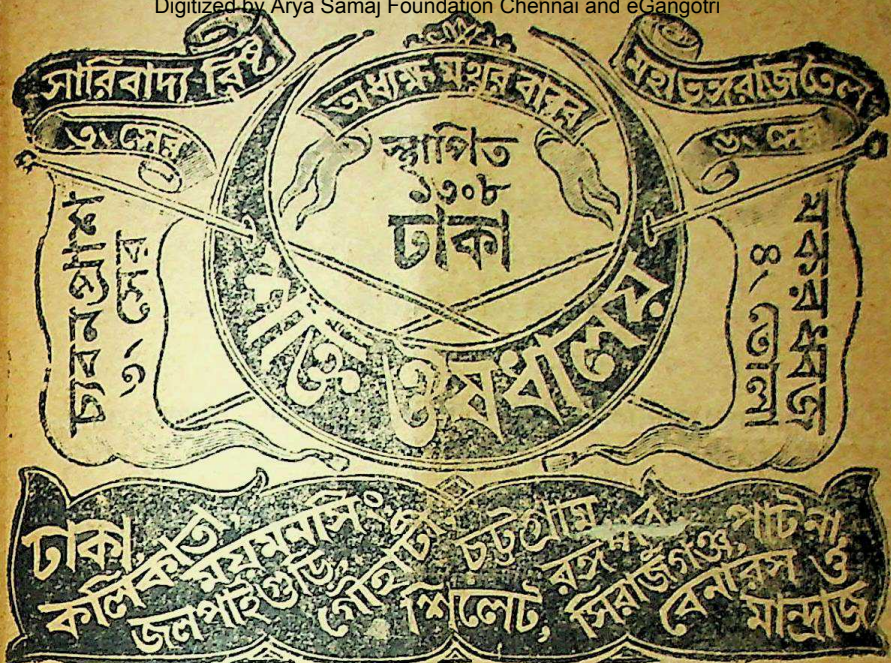 Digitized by Arya Samaj Foundation Chennai and eGangotri
সারিবাদ্য রিষ্ট
৩৲ সের
অধ্যক্ষ মথুর বাবুর
মহাভৃঙ্গরাজ তৈল
৬৲ সের
স্থাপিত
১৩০৮
ঢাকা
চ্যবনপ্রাশ
৩৲ সের
মকরধ্বজ
৪৲ তোলা
ঔষধালয়
ঢাকা,
কলিকাতা,
ময়মনসিং
জলপাইগুড়ি,
গৌহাটী,
চট্টগ্রাম
শিলেট,
রঙ্গপুর
সিরাজগঞ্জ,
পাটনা,
বেনারস ও
মান্দ্রাজ